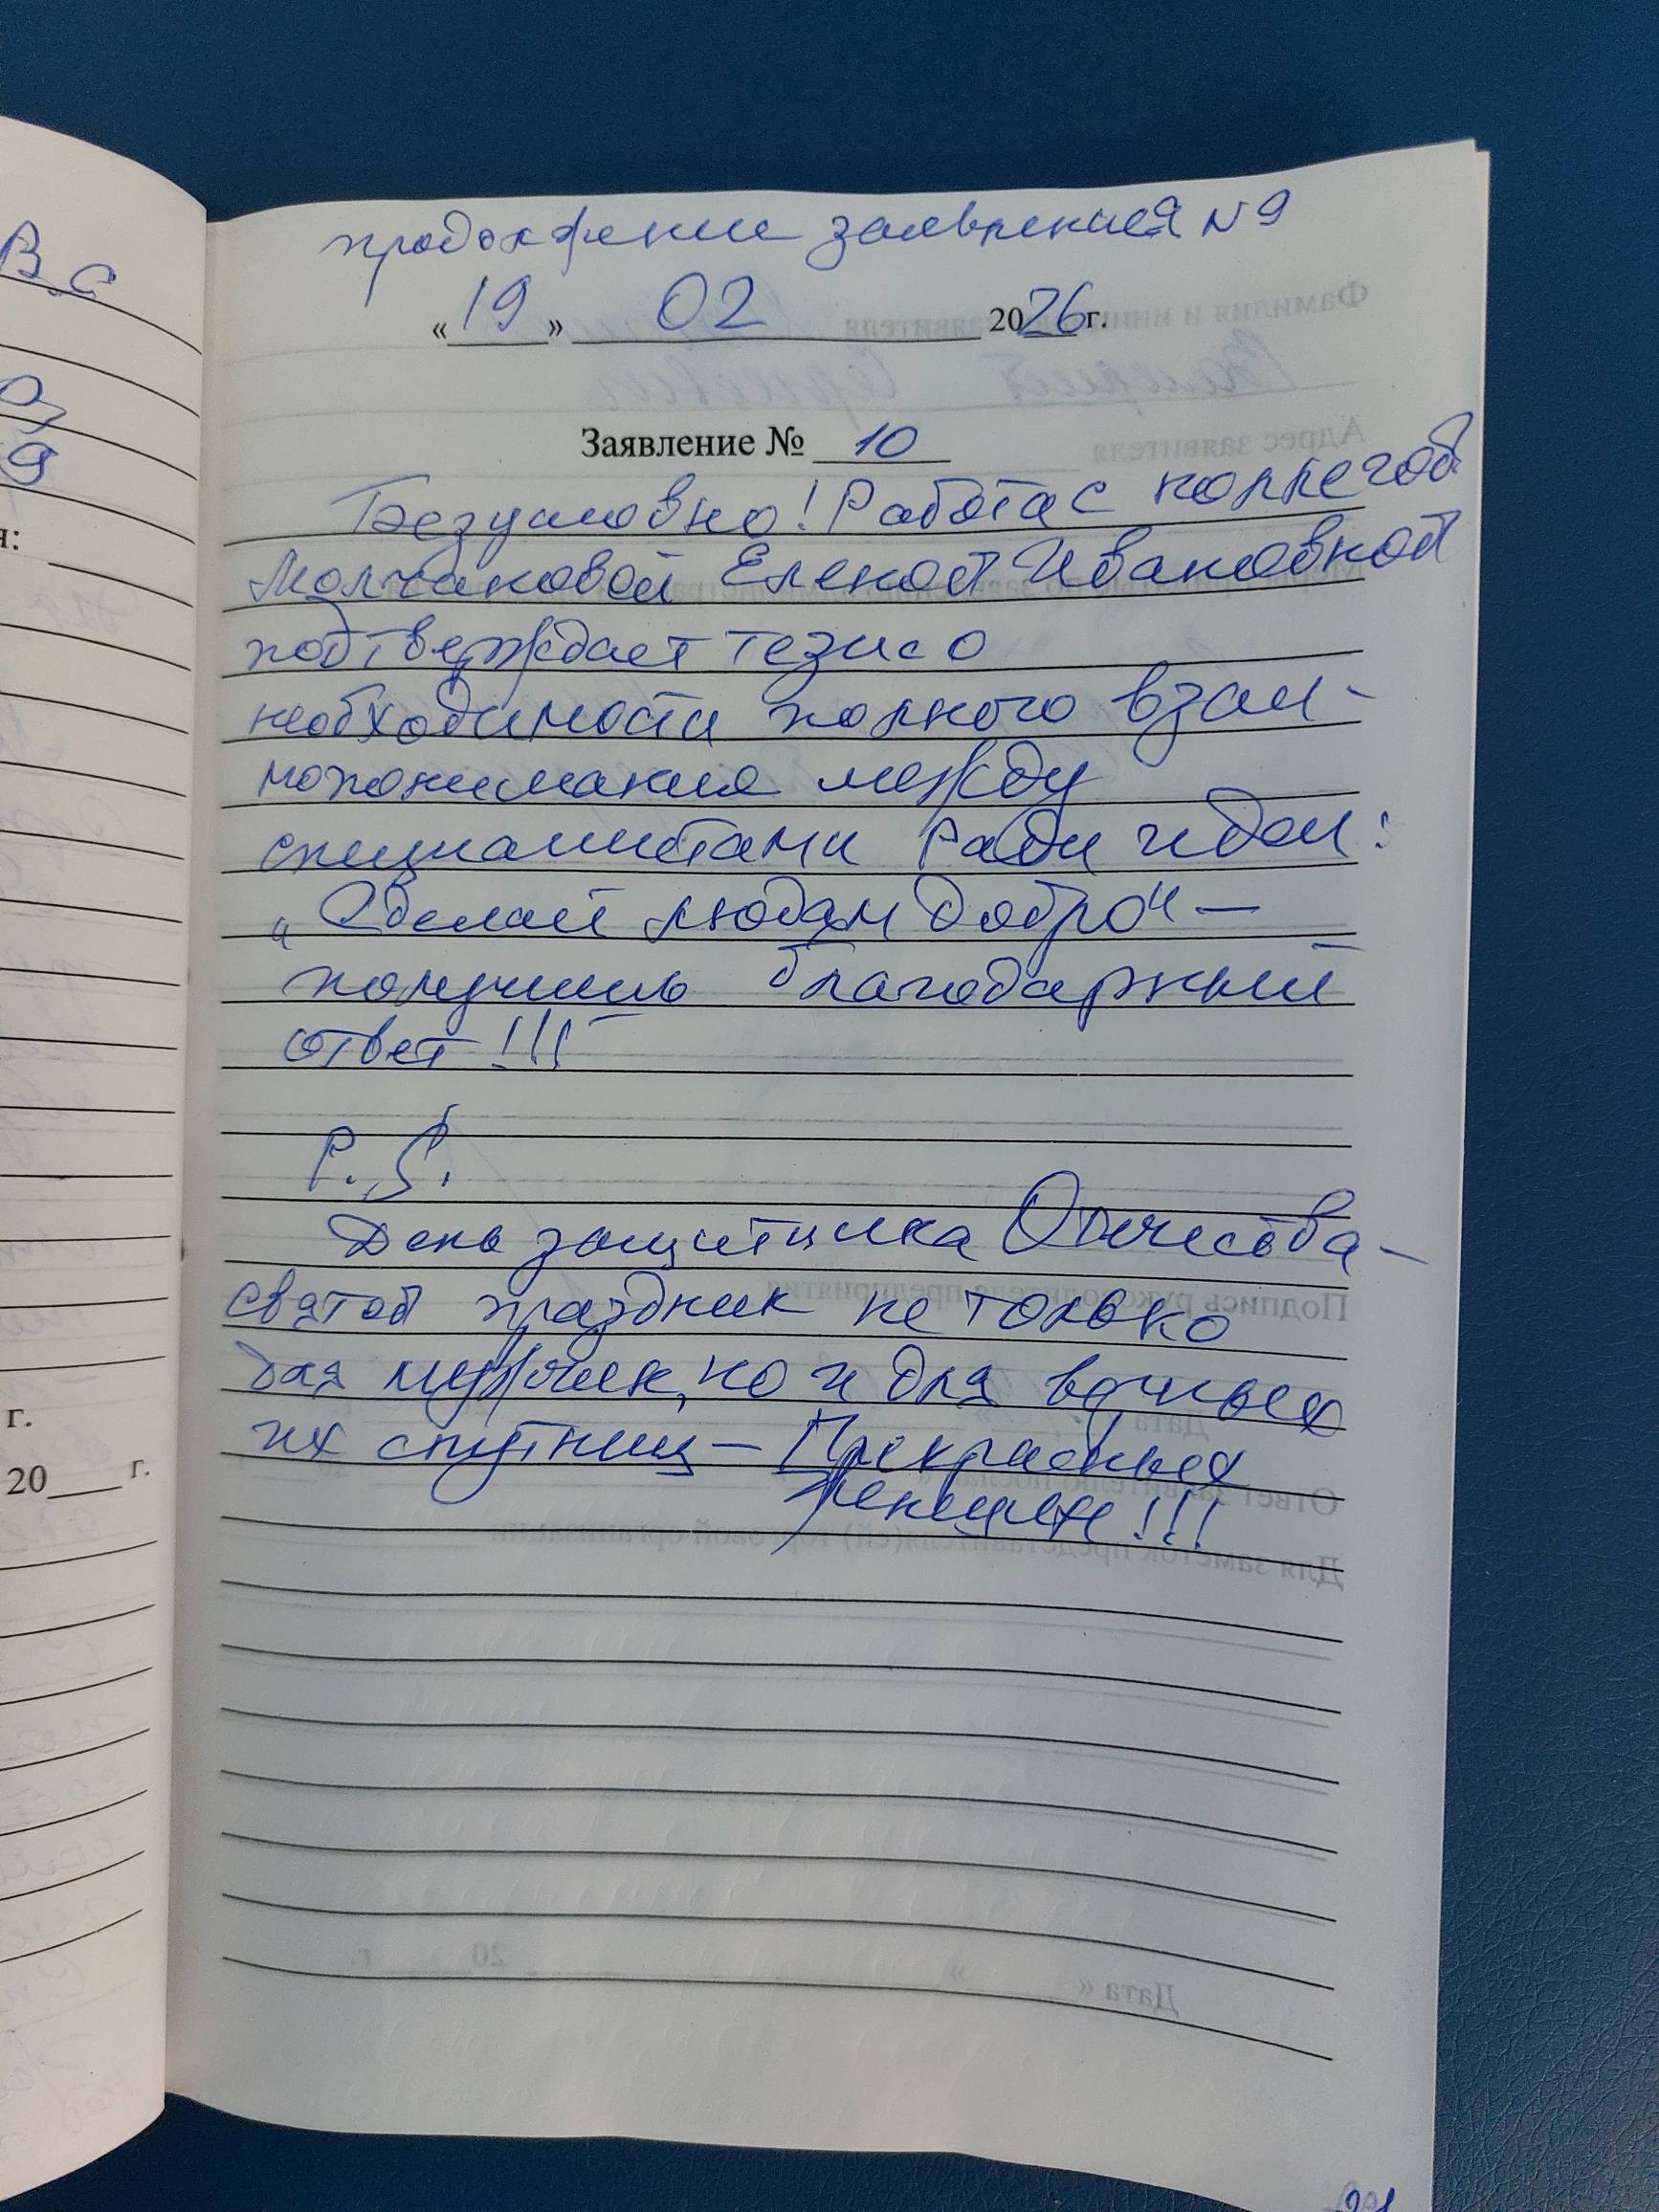 продолжение заявления N 9
«19» 02 2026 г.
Заявление № 10
Безусловно! Работа с коллегой
Молчановой Еленой Ивановной
подтверждает тезис о
необходимости полного взаи-
мопонимания между
специалистами ради идеи:
„Сделай людям добро" —
получишь благодарный
ответ!!!
P.S.
День защитника Отечества -
святой праздник не только
для мужчин, но и для верных
их спутниц — Прекрасных
Женщин!!!
В.С
9
я:
г.
20 г.